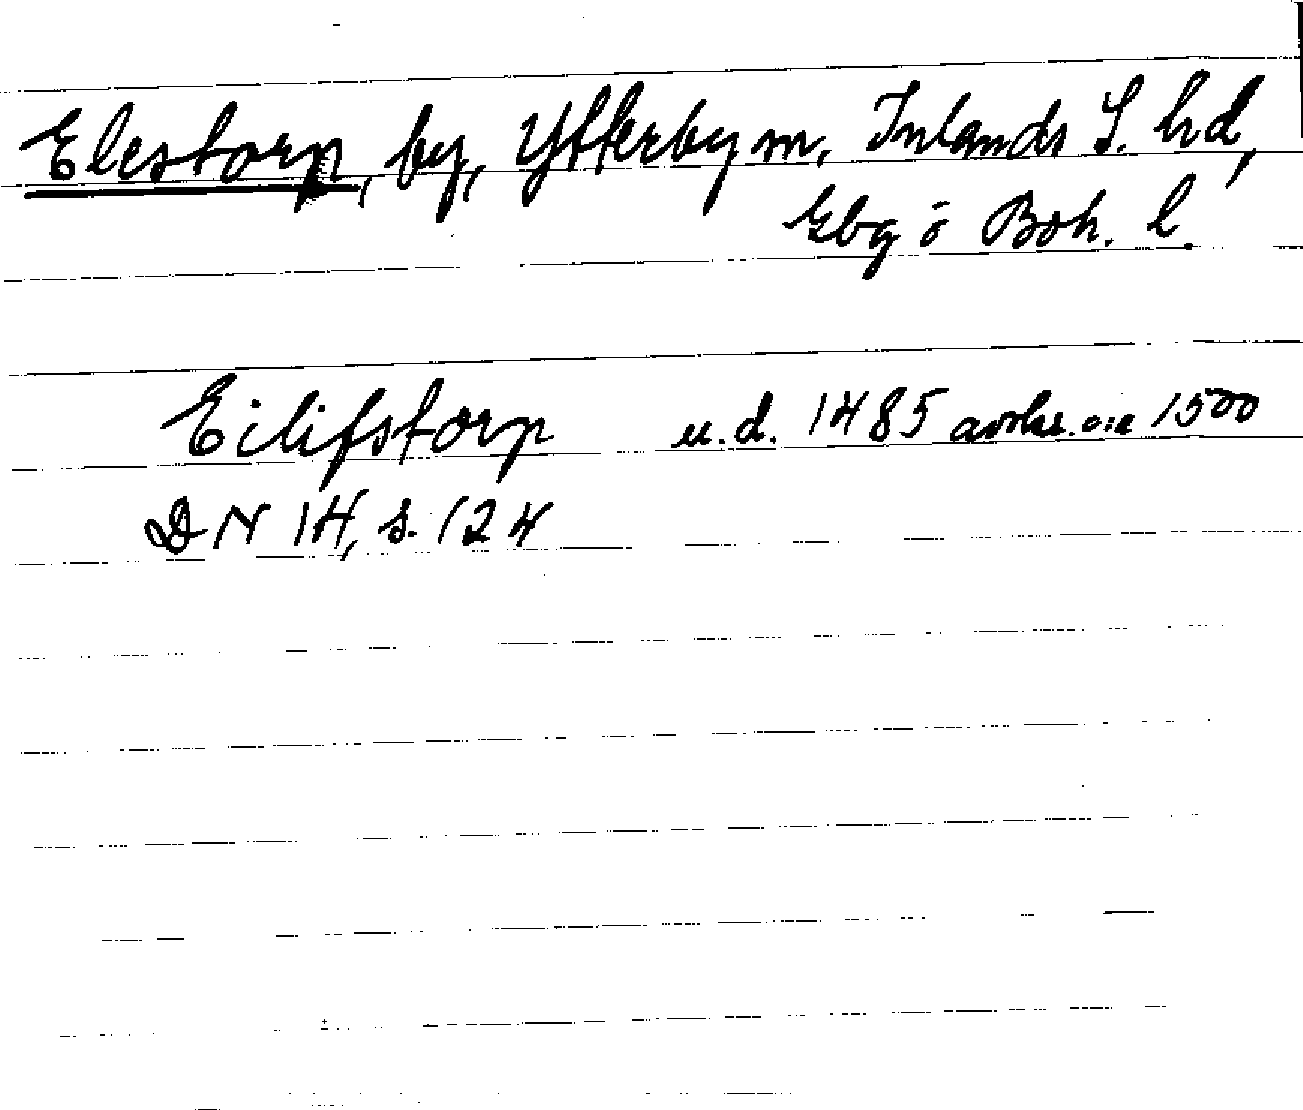 Elestorp, by, Ytterby sn, Inlands S. hd,
Gbg o Boh. l.
Eilifstorp u.d. 1485 avskr. o. 1500
DN 14, s. 124